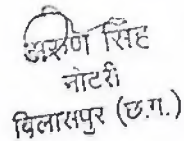 अरुण सिंह
नोटरी
विलासपुर (छ.ग.)